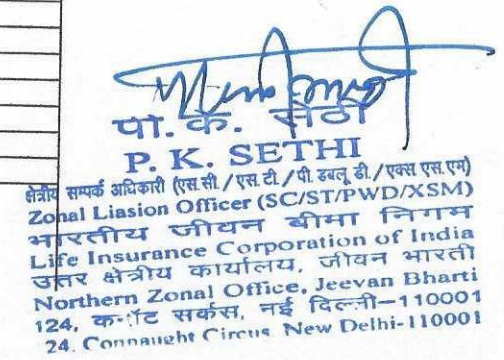 पी. के. सेठी
P. K. SETHI
क्षेत्रीय सम्पर्क अधिकारी (एस.सी./एस.टी./पी.डबलू.डी./एक्स एस.एम)
Zonal Liasion Officer (SC/ST/PWD/XSM)
भारतीय जीवन बीमा निगम
Life Insurance Corporation of India
उत्तर क्षेत्रीय कार्यालय, जीवन भारती
Northern Zonal Office, Jeevan Bharti
124, कनॉट सर्कस, नई दिल्ली-110001
24, Connaught Circus, New Delhi-110001